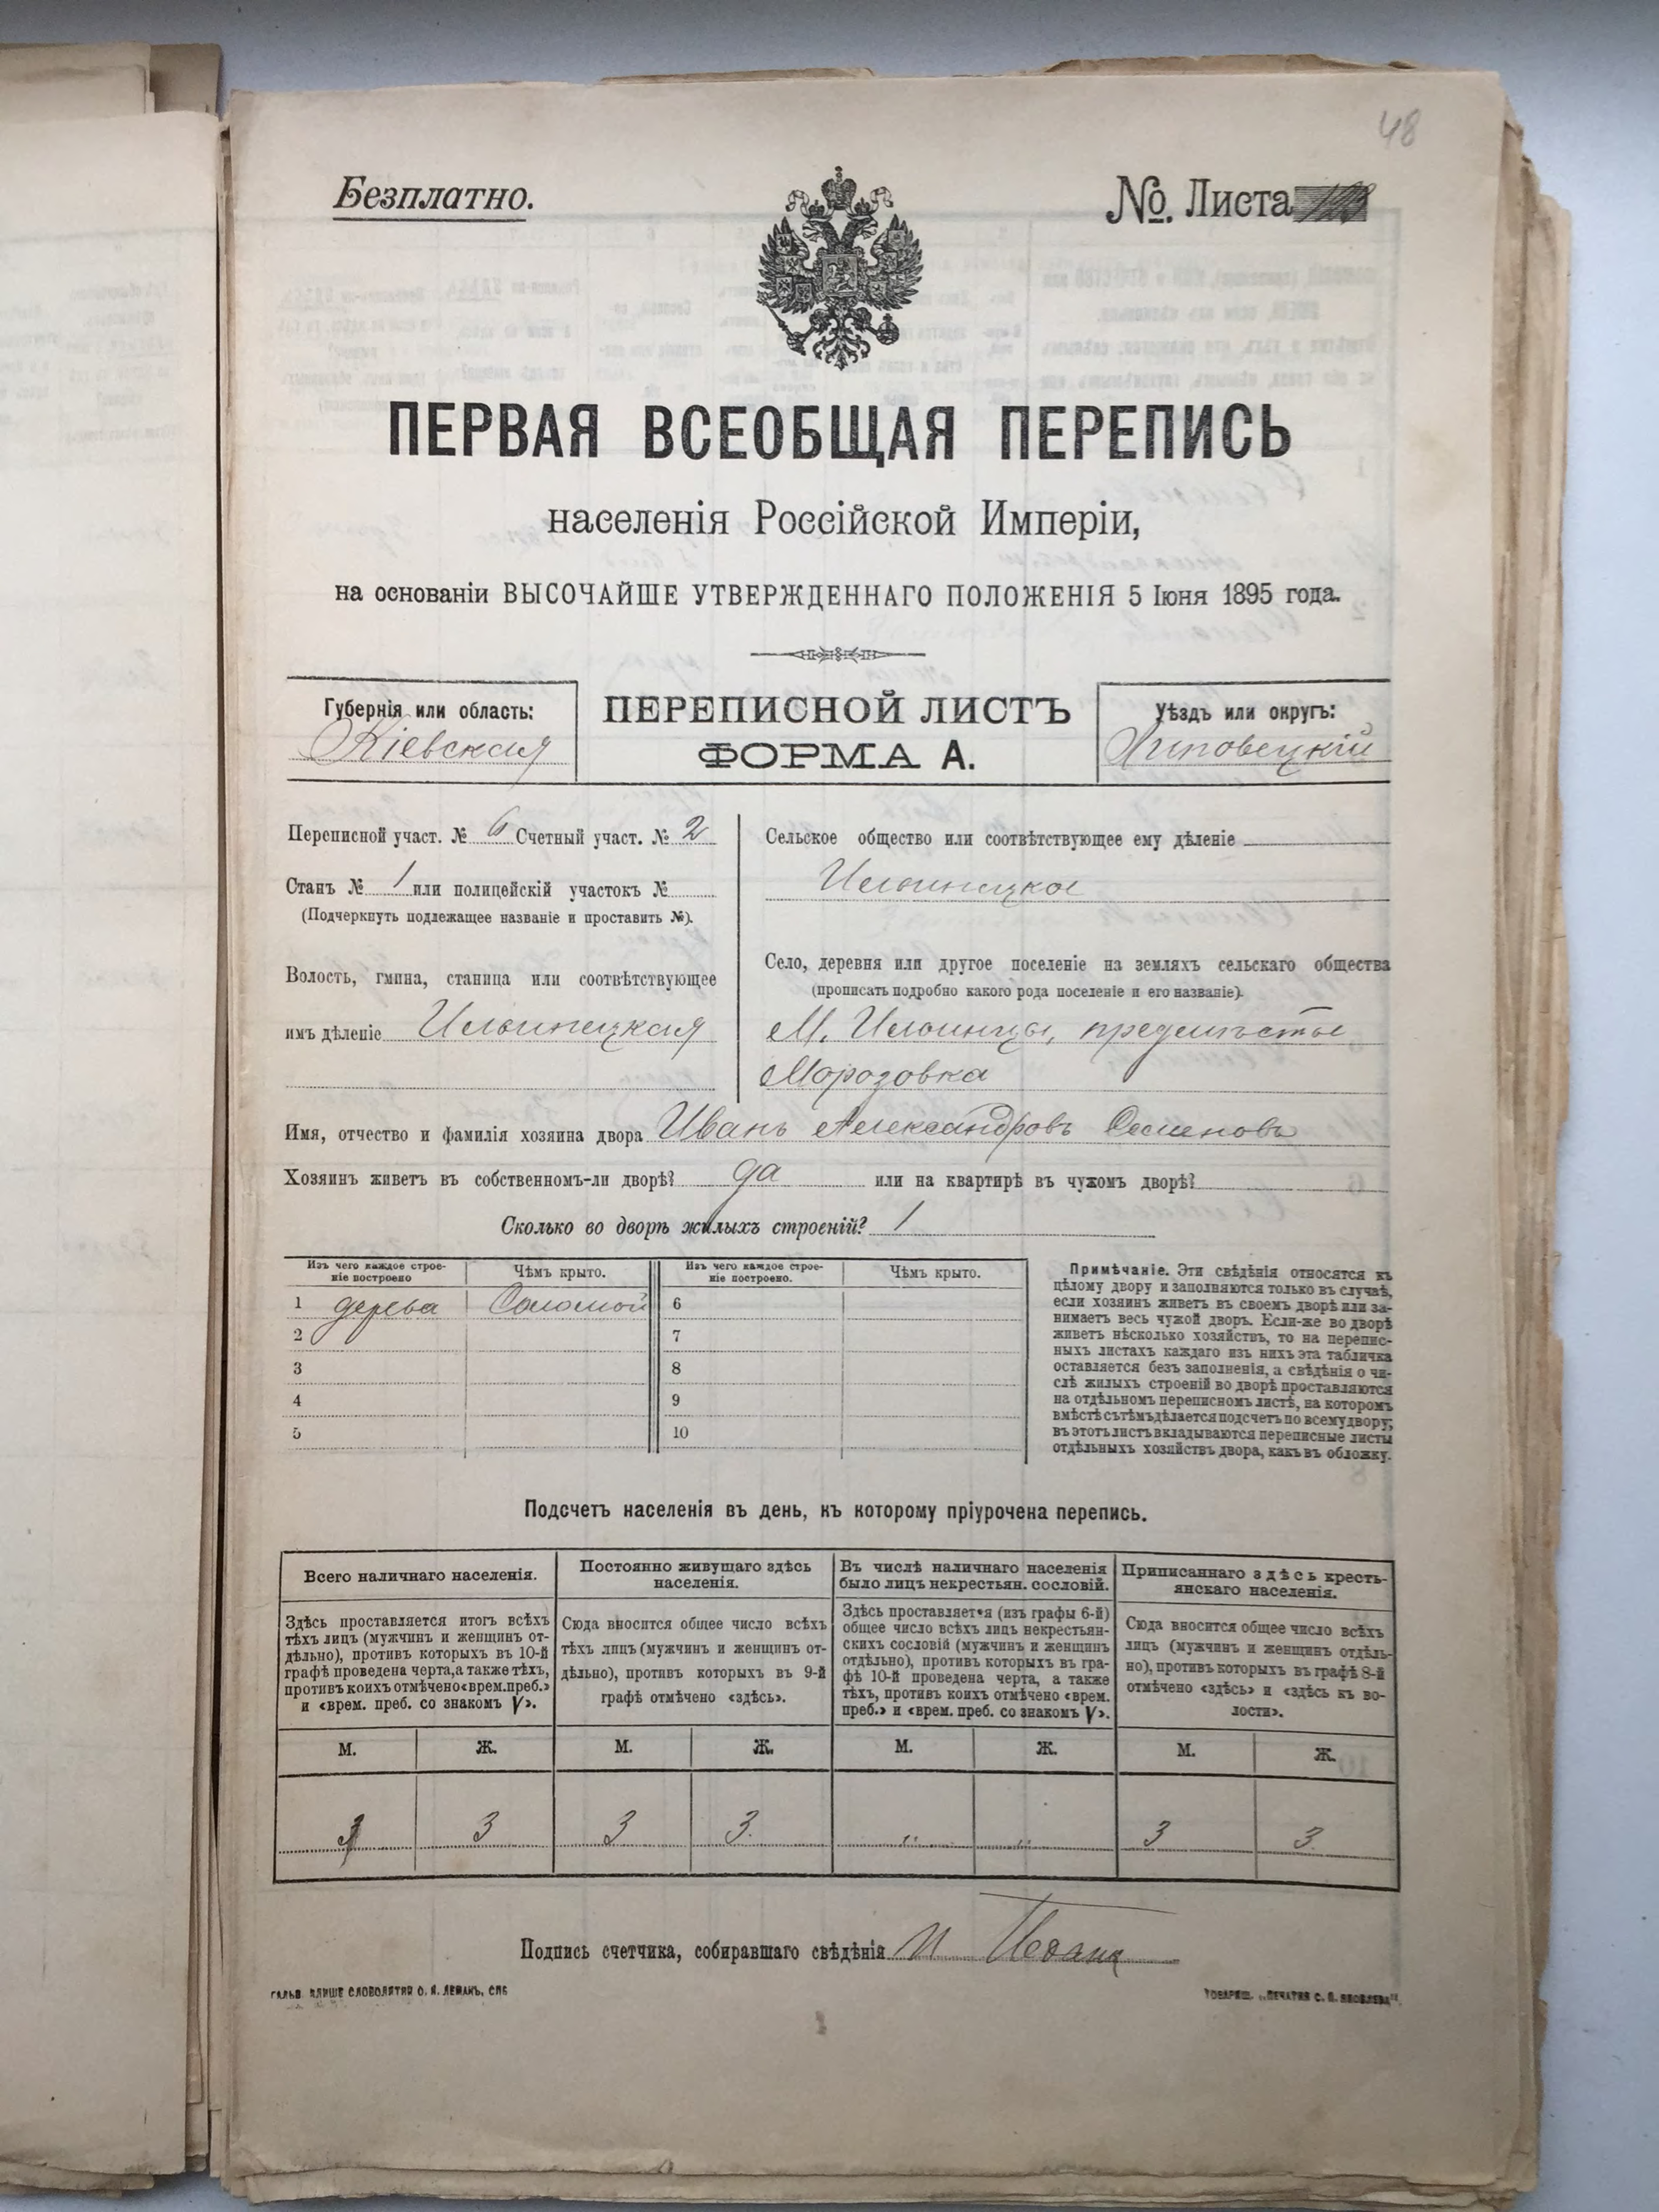 48
Безплатно.
№. Листа
ПЕРВАЯ ВСЕОБЩАЯ ПЕРЕПИСЬ
населенія Россійской Имперіи,
на основаніи ВЫСОЧАЙШЕ УТВЕРЖДЕННАГО ПОЛОЖЕНІЯ 5 Іюня 1895 года.
Губернія или область:
Кіевская
ПЕРЕПИСНОЙ ЛИСТЪ
ФОРМА А.
Уѣздъ или округъ:
Липовецкій
Переписной участ. № 6 Счетный участ. № 2
Станъ № 1 или полицейскій участокъ №
(Подчеркнуть подлежащее названіе и проставить №).
Волость, гмина, станица или соотвѣтствующее
имъ дѣленіе Ильинецкая
Сельское общество или соотвѣтствующее ему дѣленіе
Ильинецкое
Село, деревня или другое поселеніе на земляхъ сельскаго общества
(прописать подробно какого рода поселеніе и его названіе).
М. Ильинцы, предмѣстье
Морозовка
Имя, отчество и фамилія хозяина двора Иванъ Александровъ Семеновъ
Хозяинъ живетъ въ собственномъ-ли дворѣ? да или на квартирѣ въ чужомъ дворѣ?
Сколько во дворѣ жилыхъ строеній? 1
Изъ чего каждое строе-
ніе построено
Чѣмъ крыто.
Изъ чего каждое строе-
ніе построено.
Чѣмъ крыто.
1 дерева Соломой 6
2 7
3 8
4 9
5 10
Примѣчаніе. Эти свѣдѣнія относятся къ
цѣлому двору и заполняются только въ случаѣ,
если хозяинъ живетъ въ своемъ дворѣ или за-
нимаетъ весь чужой дворъ. Если-же во дворѣ
живетъ нѣсколько хозяйствъ, то на перепис-
ныхъ листахъ каждаго изъ нихъ эта табличка
оставляется безъ заполненія, а свѣдѣнія о чи-
слѣ жилыхъ строеній во дворѣ проставляются
на отдѣльномъ переписномъ листѣ, на которомъ
вмѣстѣ съ тѣмъ дѣлается подсчетъ по всему двору;
въ этотъ листъ вкладываются переписные листы
отдѣльныхъ хозяйствъ двора, какъ въ обложку.
Подсчетъ населенія въ день, къ которому пріурочена перепись.
Всего наличнаго населенія.
Здѣсь проставляется итогъ всѣхъ
тѣхъ лицъ (мужчинъ и женщинъ от-
дѣльно), противъ которыхъ въ 10-й
графѣ проведена черта, а также тѣхъ,
противъ коихъ отмѣчено «врем. преб.»
и «врем. преб. со знакомъ V».
М. Ж.
3
Постоянно живущаго здѣсь
населенія.
Сюда вносится общее число всѣхъ
тѣхъ лицъ (мужчинъ и женщинъ от-
дѣльно), противъ которыхъ въ 9-й
графѣ отмѣчено «здѣсь».
М. Ж.
3 3.
Въ числѣ наличнаго населенія
было лицъ некрестьян. сословій.
Здѣсь проставляется (изъ графы 6-й)
общее число всѣхъ лицъ некрестьян-
скихъ сословій (мужчинъ и женщинъ
отдѣльно), противъ которыхъ въ гра-
фѣ 10-й проведена черта, а также
тѣхъ, противъ коихъ отмѣчено «врем.
преб.» и «врем. преб. со знакомъ V».
М. Ж.
„ „
Приписаннаго здѣсь кресть-
янскаго населенія.
Сюда вносится общее число всѣхъ
лицъ (мужчинъ и женщинъ отдѣль-
но), противъ которыхъ въ графѣ 8-й
отмѣчено «здѣсь» и «здѣсь къ во-
лости».
М. Ж.
3 3.
Подпись счетчика, собиравшаго свѣдѣнія
ГАЛЬВ. КЛИШЕ СЛОВОЛИТНИ О. И. ЛЕМАНЪ, СПБ
ТОВАРИЩ. „ПЕЧАТНЯ С. П. ЯКОВЛЕВА".